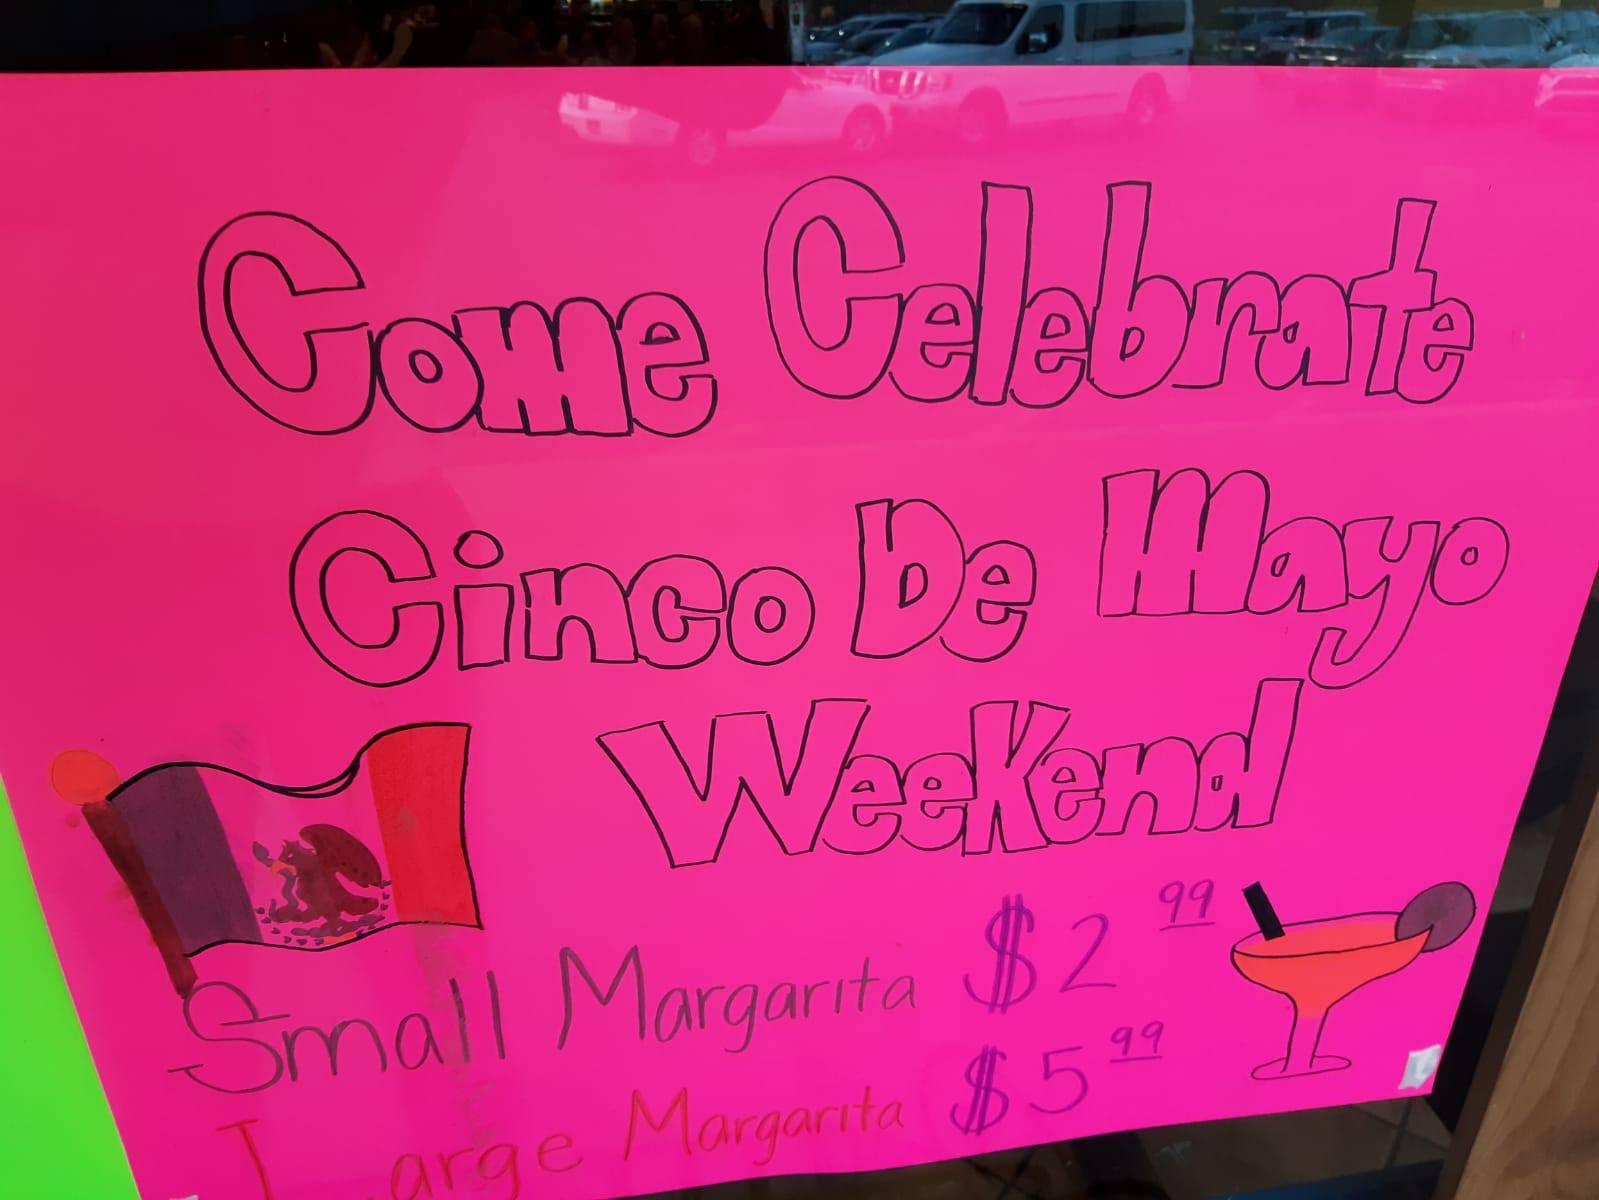 Come Celebrate
Cinco De Mayo
Weekend
Small Margarita $2 99
Large Margarita $5 99